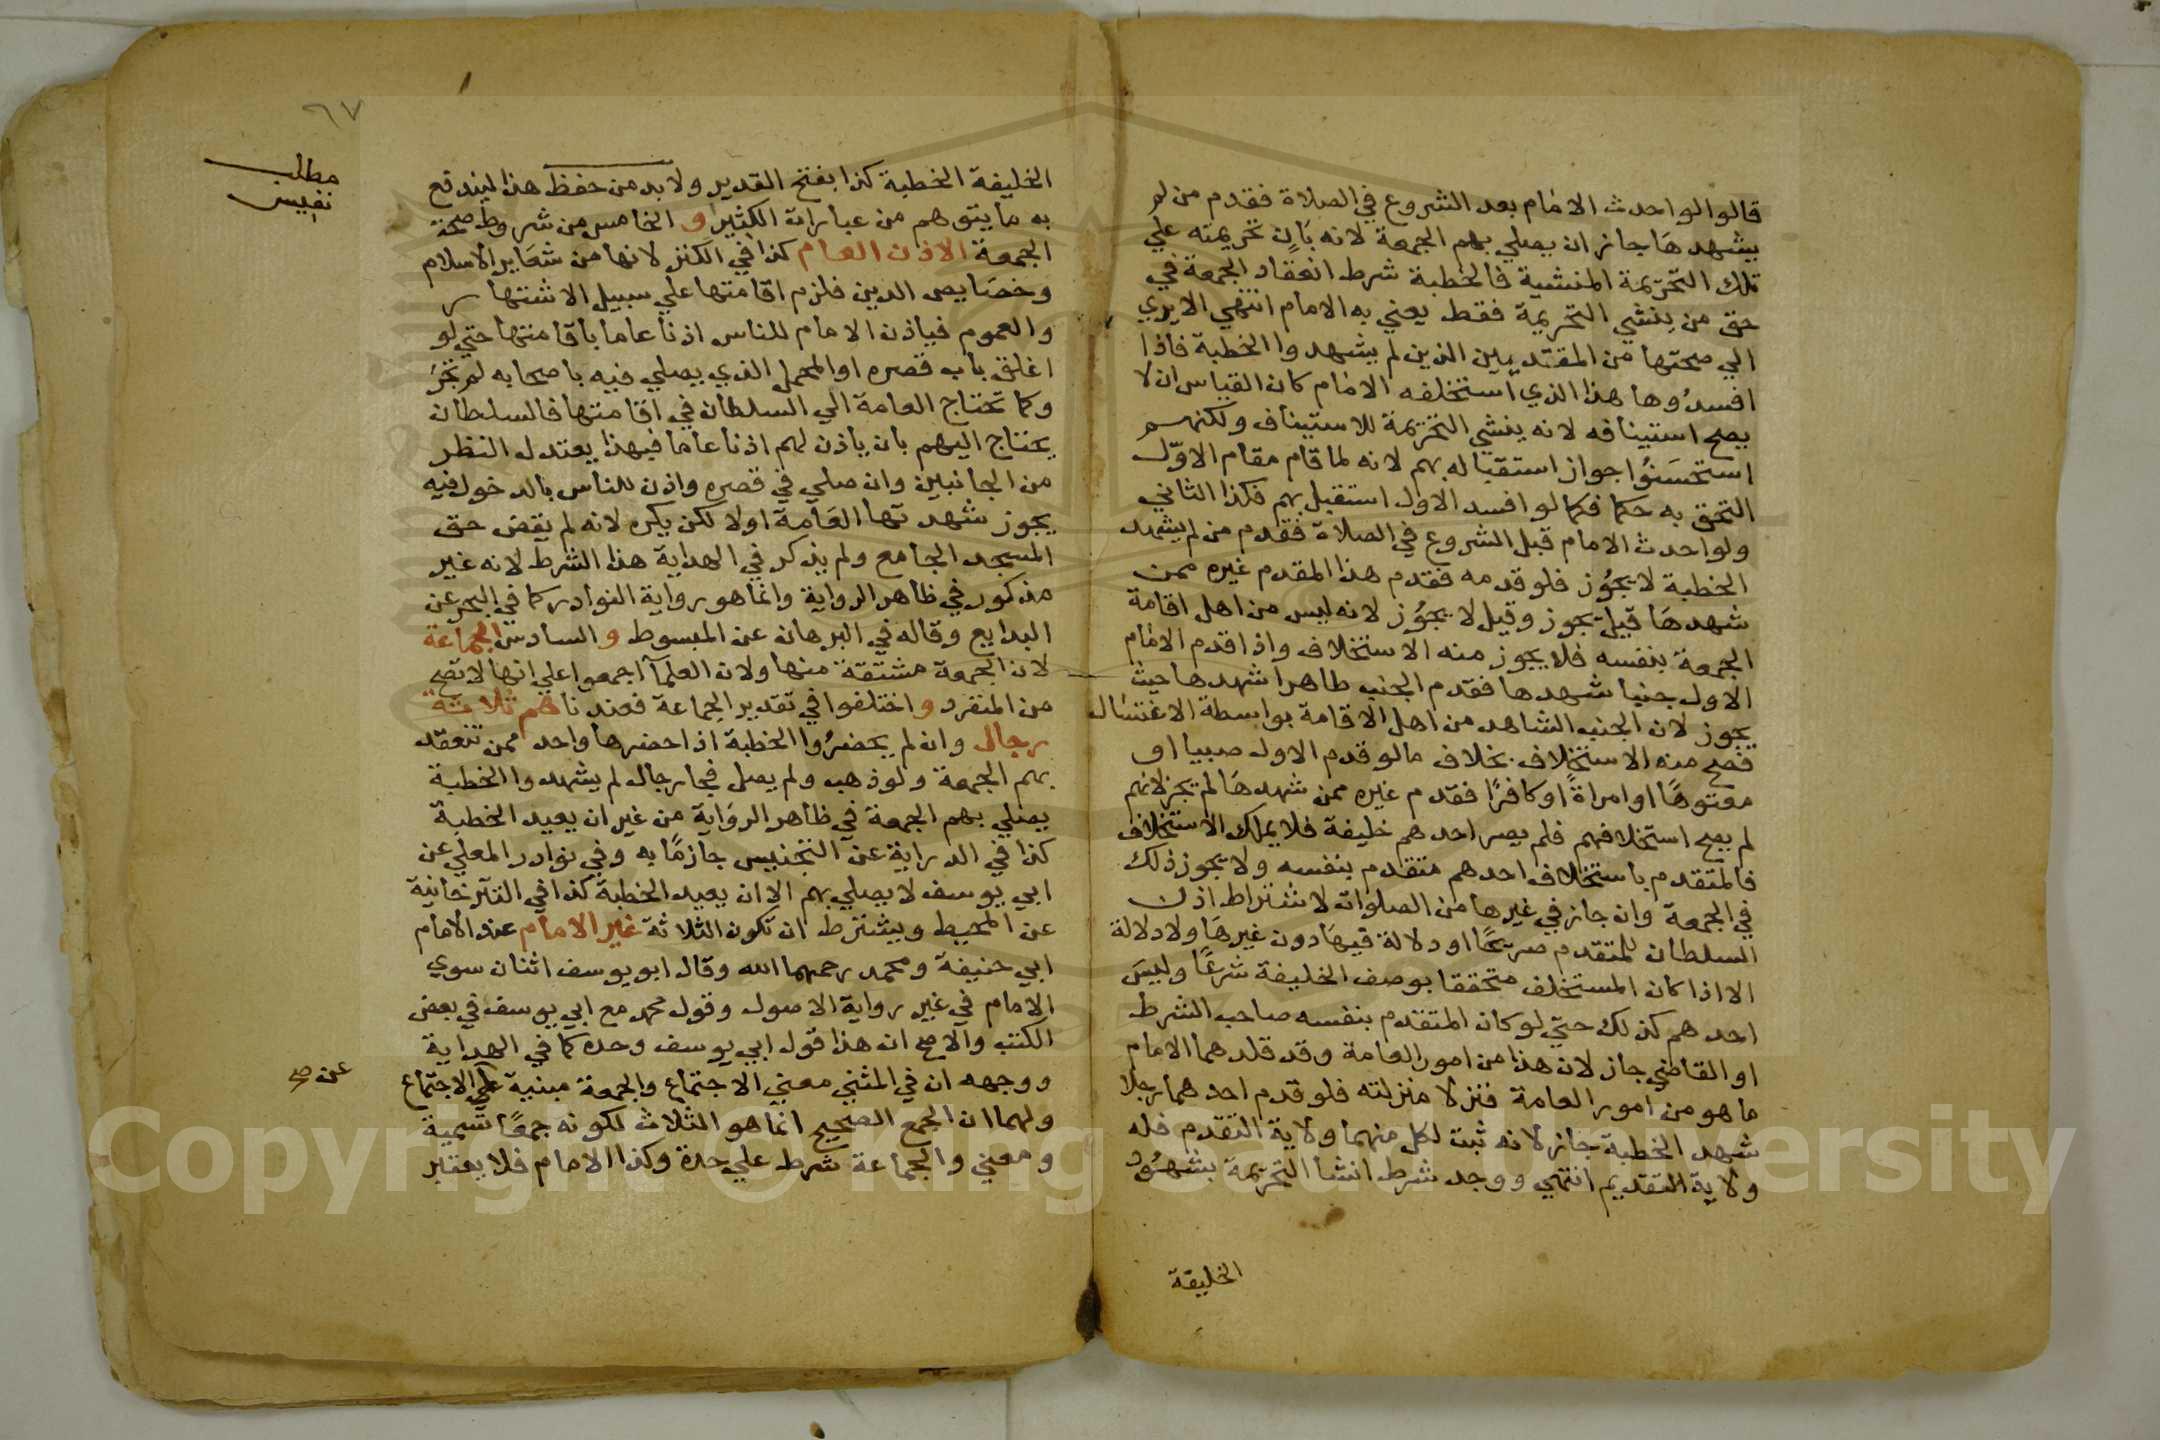 قالوا لو احدث الامام بعد الشروع في الصلاة فقدم من لم
يشهدها جاز ان يصلي بهم الجمعة لانه بان تحريمته علي
تلك التحريمة المنشية فالخطبة شرط انعقاد الجمعة في
حق من ينشي التحريمة فقط يعني به الامام انتهي الا يري
الي صحتها من المقتديين الذين لم يشهدوا الخطبة فاذا
افسدوها هذا الذي استخلفه الامام كان القياس ان لا
يصح استينافه لانه ينشي التحريمة للاستيناف ولكنهم
استحسنوا جواز استقباله بهم لانه لما قام مقام الاول
التحق به حكما فكما لو افسد الاول استقبل بهم فكذا الثاني
ولو احدث الامام قبل الشروع في الصلاة فقدم من لم يشهد
الخطبة لا يجوز فلو قدمه فقدم هذا المقدم غيره ممن
شهدها قيل يجوز وقيل لا يجوز لانه ليس من اهل اقامة
الجمعة بنفسه فلا يجوز منه الاستخلاف واذا قدم الامام
الاول جنبا شهدها فقدم الجنب طاهرا شهدها حيث
يجوز لان الجنب الشاهد من اهل الاقامة بواسطة الاغتسال
فصح منه الاستخلاف بخلاف ما لو قدم الاول صبيا او
معتوها او امراة او كافرا فقدم غيره ممن شهدها لم يجز لانهم
لم يصح استخلافهم فلم يصر احدهم خليفة فلا يملك الاستخلاف
فالمتقدم باستخلاف احدهم متقدم بنفسه ولا يجوز ذلك
في الجمعة وان جاز في غيرها من الصلوات لاشتراط اذن
السلطان للمتقدم صريحا او دلالة فيها دون غيرها ولا دلالة
الا اذا كان المستخلف متحققا بوصف الخليفة شرعا وليس
احدهم كذلك حتي لو كان المتقدم بنفسه صاحب الشرط
او القاضي جاز لان هذا من امور العامة وقد قلدهما الامام
ما هو من امور العامة فنزلا منزلته فلو قدم احدهما رجلا
شهد الخطبة جاز لانه ثبت لكل منهما ولاية التقدم فله
ولاية التقديم انتهي ووجد شرط انشا التحريمة بشهود
الخليفة
٦٧
مطلب
نفيس
الخليفة الخطبة كذا بفتح القدير ولا بد من حفظ هذا ليندفع
به ما يتوهم من عبارات الكثير و الخامس من شروط صحة
الجمعة الاذن العام كذا في الكنز لانها من شعاير الاسلام
وخصايص الدين فلزم اقامتها علي سبيل الاشتهار
والعموم فياذن الامام للناس اذنا عاما باقامتها حتي لو
اغلق باب قصره او المحمل الذي يصلي فيه باصحابه لم تجز
وكما تحتاج العامة الي السلطان في اقامتها فالسلطان
يحتاج اليهم بان ياذن لهم اذنا عاما فبهذا يعتدل النظر
من الجانبين وان صلي في قصره واذن للناس بالدخول فيه
يجوز شهدتها العامة اولا لكن يكره لانه لم يقض حق
المسجد الجامع ولم يذكر في الهداية هذا الشرط لانه غير
مذكور في ظاهر الرواية وانما هو رواية النوادر كما في البحر عن
البدايع وقاله في البرهان عن المبسوط و السادس الجماعة
لان الجمعة مشتقة منها ولان العلما اجمعوا علي انها لا تصح
من المنفرد و اختلفوا في تقدير الجماعة فعندنا هم ثلاثة
رجال وان لم يحضروا الخطبة اذا حضرها واحد ممن تنعقد
بهم الجمعة ولو ذهب ولم يصل فجا رجال لم يشهدوا الخطبة
يصلي بهم الجمعة في ظاهر الرواية من غير ان يعيد الخطبة
كذا في الدراية عن التجنيس جازما به وفي نوادر المعلي عن
ابي يوسف لا يصلي بهم الا ان يعيد الخطبة كذا في التترخانية
عن المحيط ويشترط ان تكون الثلاثة غير الامام عند الامام
ابي حنيفة ومحمد رحمهما الله وقال ابو يوسف اثنان سوي
الامام في غير رواية الاصول وقول محمد مع ابي يوسف في بعض
الكتب والاصح ان هذا قول ابي يوسف وحده كما في الهداية
ووجهه ان في المثني معني الاجتماع والجمعة مبنية علي الاجتماع
عن صح
ولهما ان الجمع الصحيح انما هو الثلاث لكونه جمعا تسمية
ومعني والجماعة شرط علي حدة وكذا الامام فلا يعتبر
Copyright © King Saud University